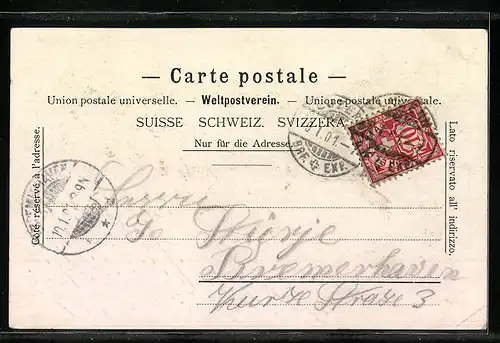 — Carte postale —
Union postale universelle. — Weltpostverein. — Unione postale universale.
SUISSE SCHWEIZ. SVIZZERA.
Nur für die Adresse
Côté réservé à l'adresse.
Lato riservato all' indirizzo.
BRF. EXP.
10
Herrn
Bremerhaven
Kurze Straße 3